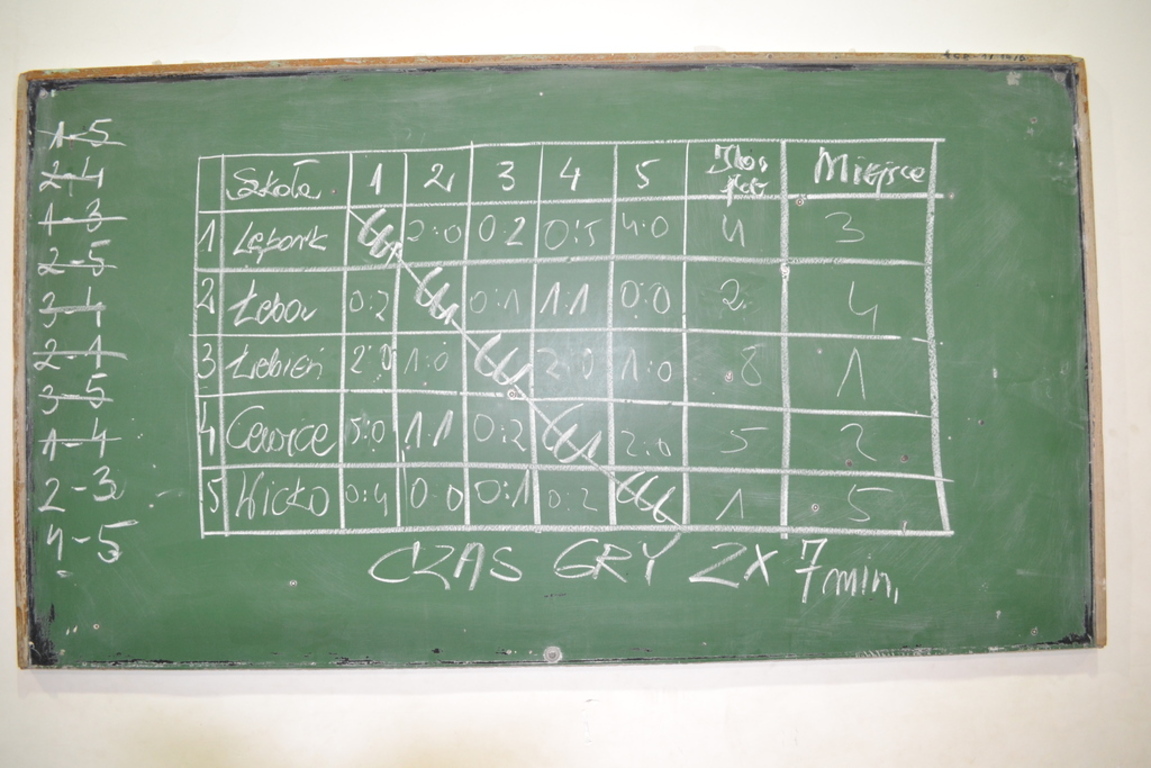 1-5
2-4
1-3
2-5
3-4
2-1
3-5
1-4
2-3
4-5
Szkoła 1 2 3 4 5 Miejsce
1 Lębork 2:0 0:2 0:5 4:0 4 3
2 0:2 0:1 1:1 0:0 2 4
3 Łebień 2:0 1:0 2:0 1:0 8 1
4 Cewice 5:0 1:1 0:2 2:0 5 2
5 Wicko 0:4 0:0 0:1 0:2 1 5
CZAS GRY 2x 7min.